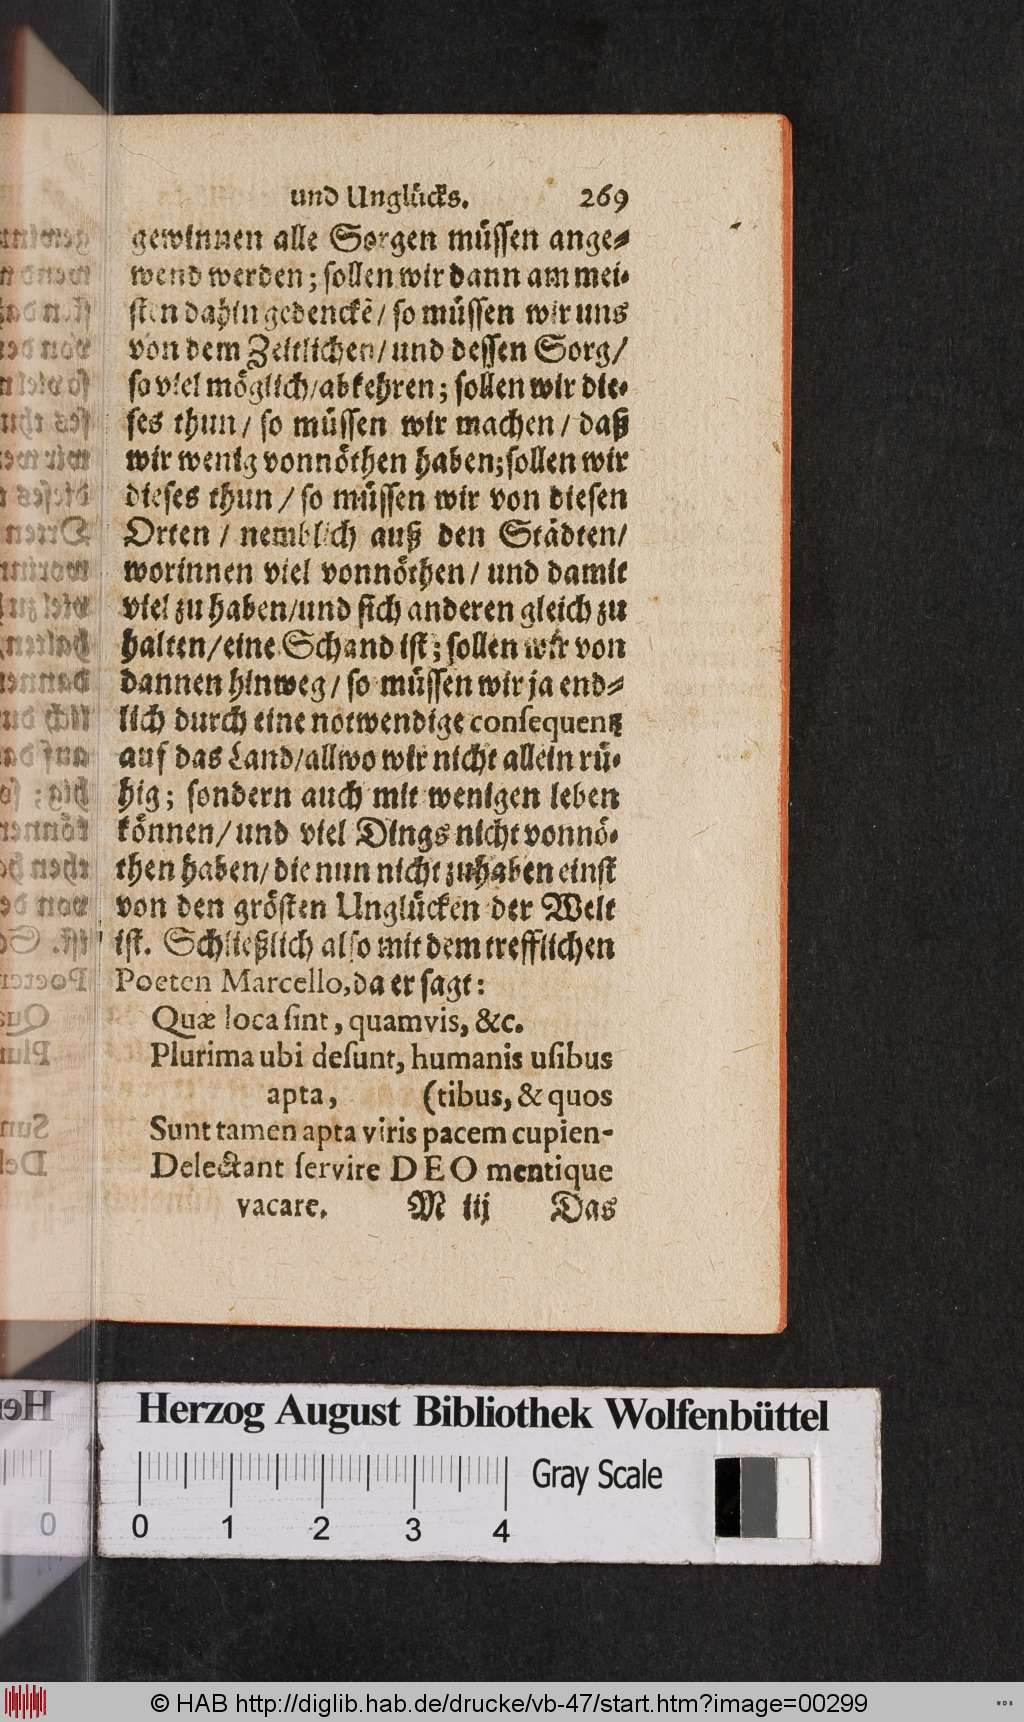 und Unglücks. 269
gewinnen alle Sorgen müssen ange-
wend werden; sollen wir dann am mei-
sten dahin gedenckē/ so müssen wir uns
von dem Zeitlichen/ und dessen Sorg/
so viel möglich/ abkehren; sollen wir die-
ses thun/ so müssen wir machen/ daß
wir wenig vonnöthen haben; sollen wir
dieses thun/ so müssen wir von diesen
Orten/ nemblich auß den Städten/
worinnen viel vonnöthen/ und damit
viel zu haben/ und sich anderen gleich zu
halten/ eine Schand ist; sollen wir von
dannen hinweg/ so müssen wir ja end-
lich durch eine notwendige consequentz
auf das Land/ allwo wir nicht allein rü-
hig; sondern auch mit wenigen leben
können/ und viel Dings nicht vonnö-
then haben/ die nun nicht zu haben einst
von den grösten Unglücken der Welt
ist. Schließlich also mit dem trefflichen
Poeten Marcello, da er sagt:
Quæ loca sint, quamvis, &c.
Plurima ubi desunt, humanis usibus
apta, (tibus, & quos
Sunt tamen apta viris pacem cupien-
Delectant servire DEO mentique
vacare. M iij Das
Herzog August Bibliothek Wolfenbüttel
Gray Scale
0 1 2 3 4
© HAB http://diglib.hab.de/drucke/vb-47/start.htm?image=00299